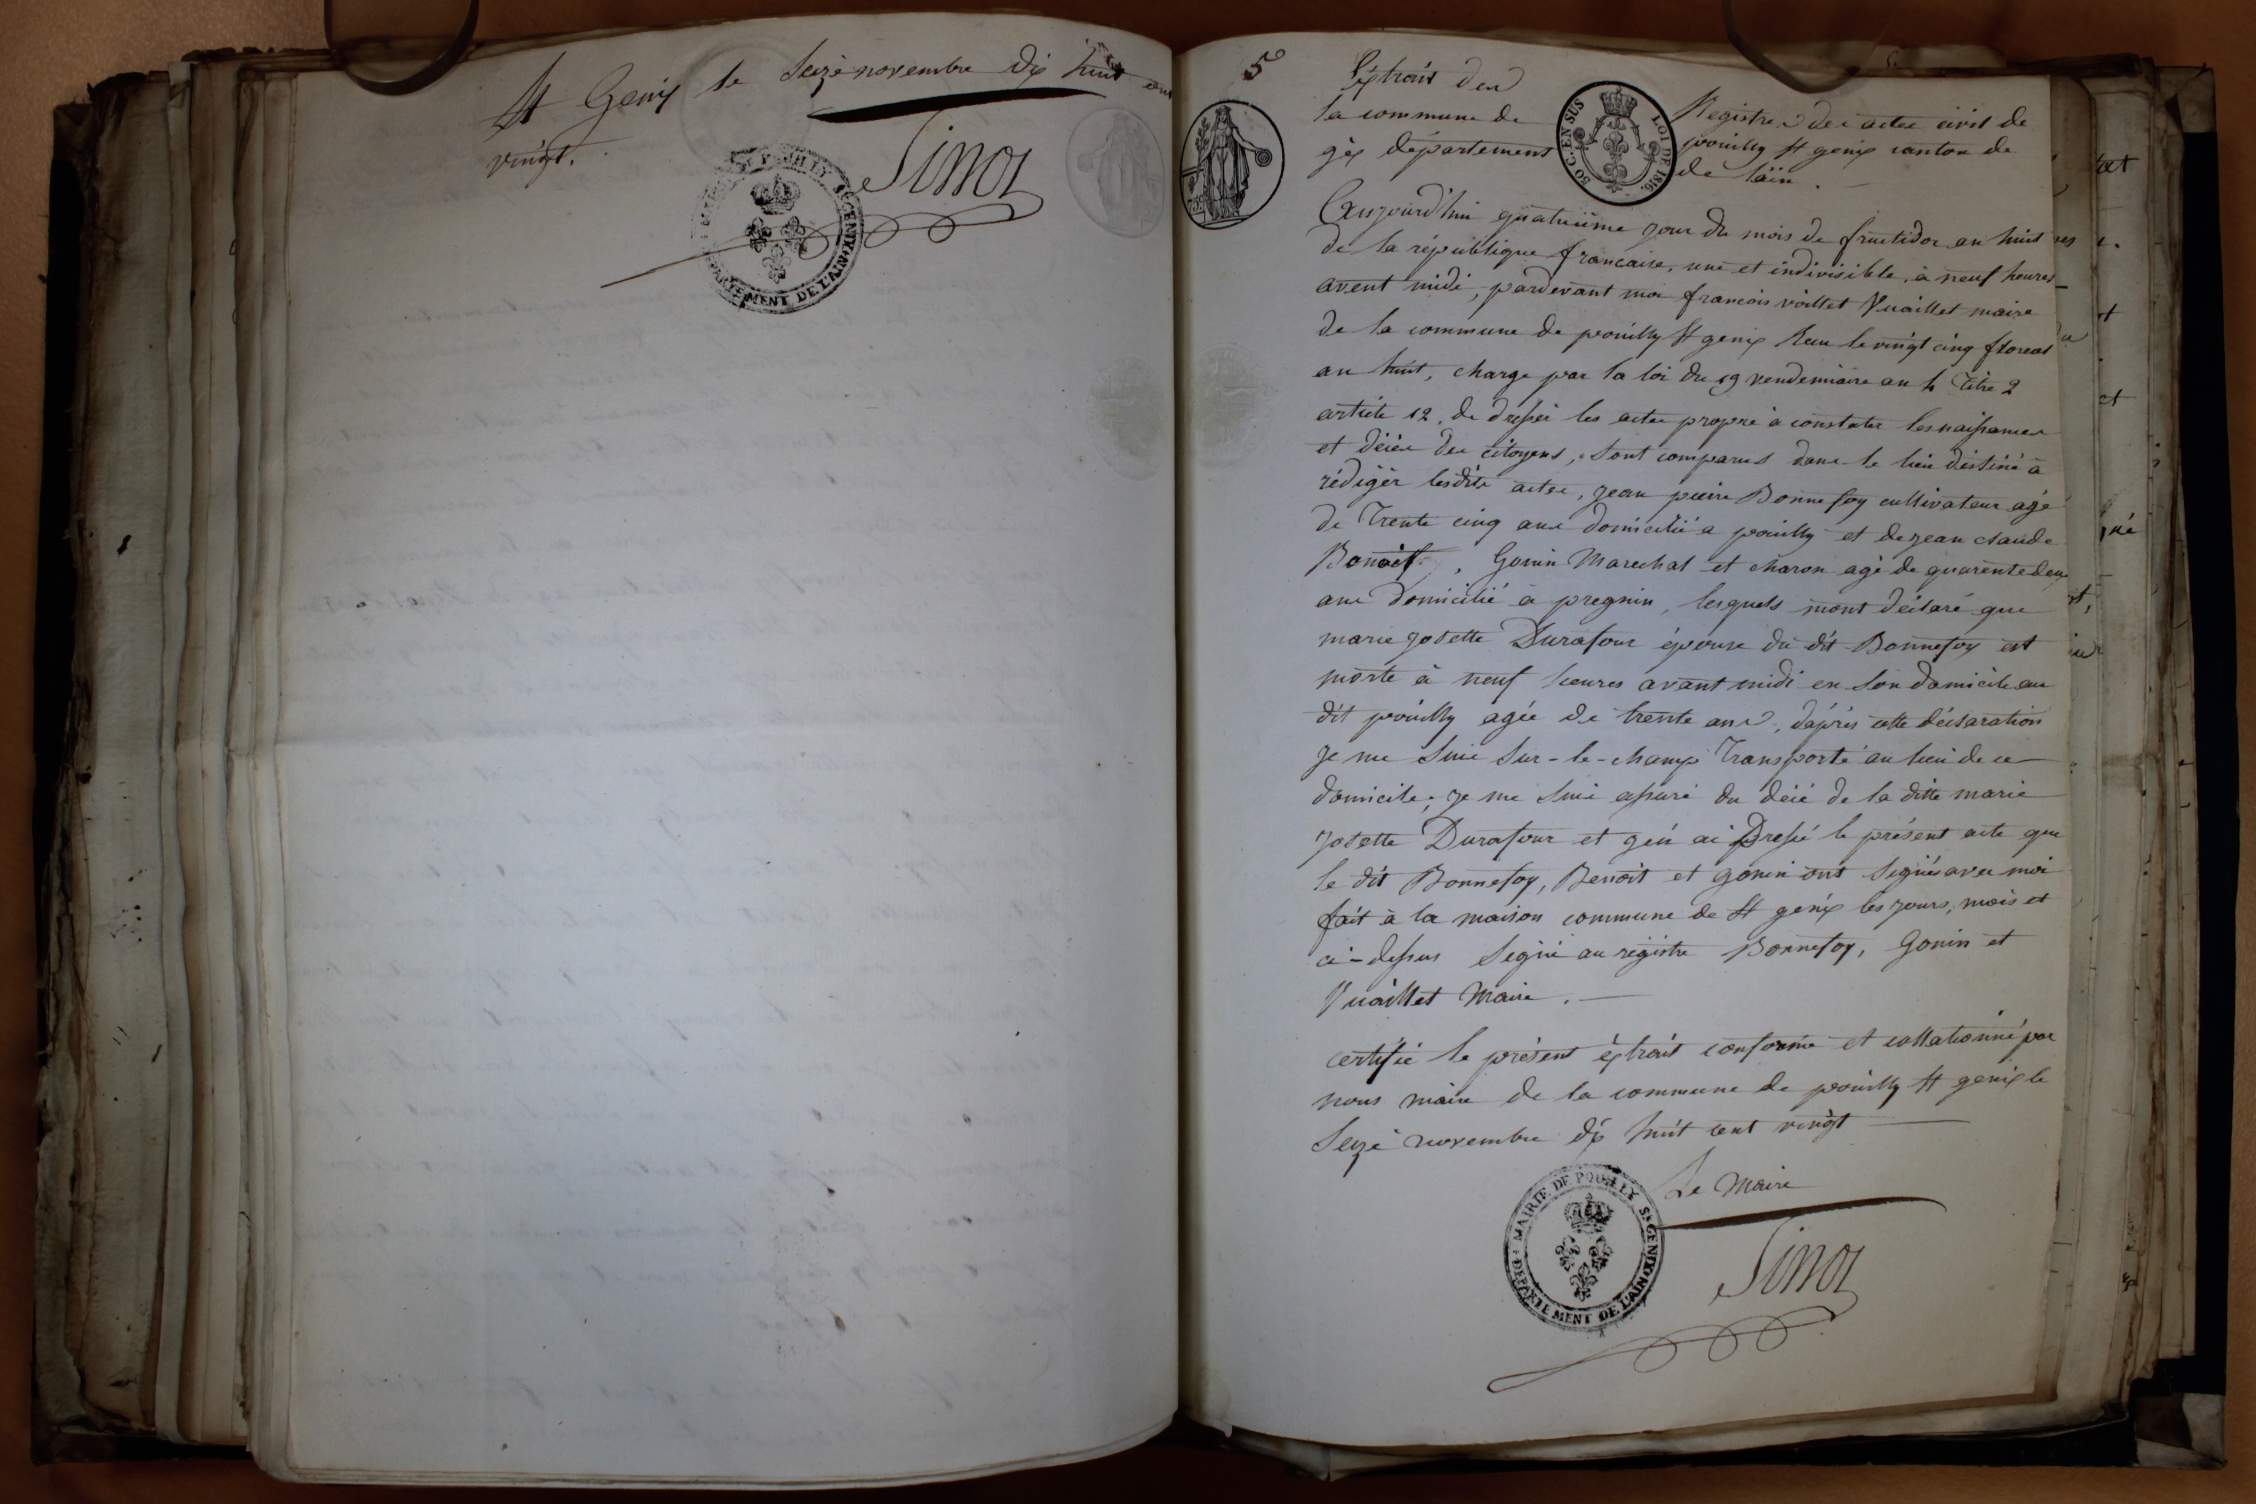 St Genix le Seize novembre Dix huit cent
vingt.
Sinoz
MAIRIE DE POUILLY St GENIX
DEPARTEMENT DE L'AIN
5
Extrait des Registres des actes civil de
la commune de pouilly St genix canton de
gèx département de l'ain.
50 C. EN SUS LOI DE 1816.
Aujourd'hui quatrième jour du mois de fructidor an huit
de la république francaise, une et indivisible, à neuf heures
avent midi, pardevant moi francois voillet Vuaillet maire
de la commune de pouilly St genix Reçu le vingt cinq floreal
an huit, charge par la loi du 19 vendemiaire an 4 Titre 2
article 12, de dresser les actes propre à constater les naissances
et décès des citoyens, sont comparus dans le lieu déstiné à
rédiger lesdits actes, jean pierre Bonnefoy cultivateur agé
de Trente cinq ans domicilié a pouilly et de jean claude
Benoit, Gonin Marechal et charon agé de quarente deux
ans domicilié à pregnin, lesquels mont déclaré que
marie josette Durafour épouse du dit Bonnefoy est
morte à neuf heures avant midi en son domicile au
dit pouilly agée de trente ans, d'après cette déclaration
je me suis sur-le-champ Transporté au lieu de ce
domicile, je me suis assuré du décé de la ditte marie
josette Durafour et j'en ai Dressé le présent acte que
le dit Bonnefoy, Benoit et gonin ont signés avec moi
fait à la maison commune de St genix les jours, mois et
ci-dessus Signé au régistre Bonnefoy, Gonin et
Vuaillet Maire.
certifié le présent éxtrait conforme et collationné par
nous maire de la commune de pouilly St genix le
Seize novembre dix huit cent vingt
Le Maire
MAIRIE DE POUILLY St GENIX
DEPARTEMENT DE L'AIN
Sinoz